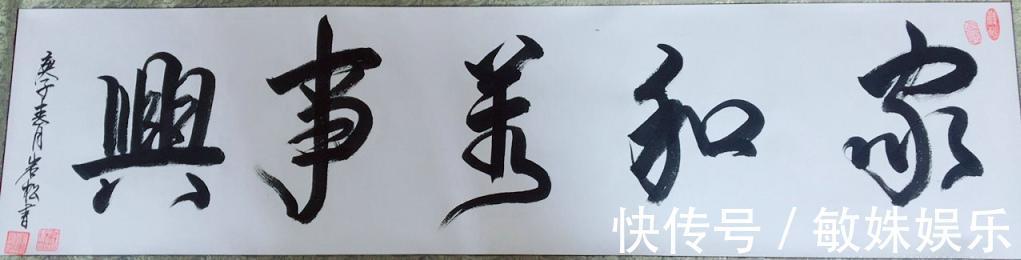 家和萬事興
庚子春月岩松書
快传号 / 敏姝娱乐